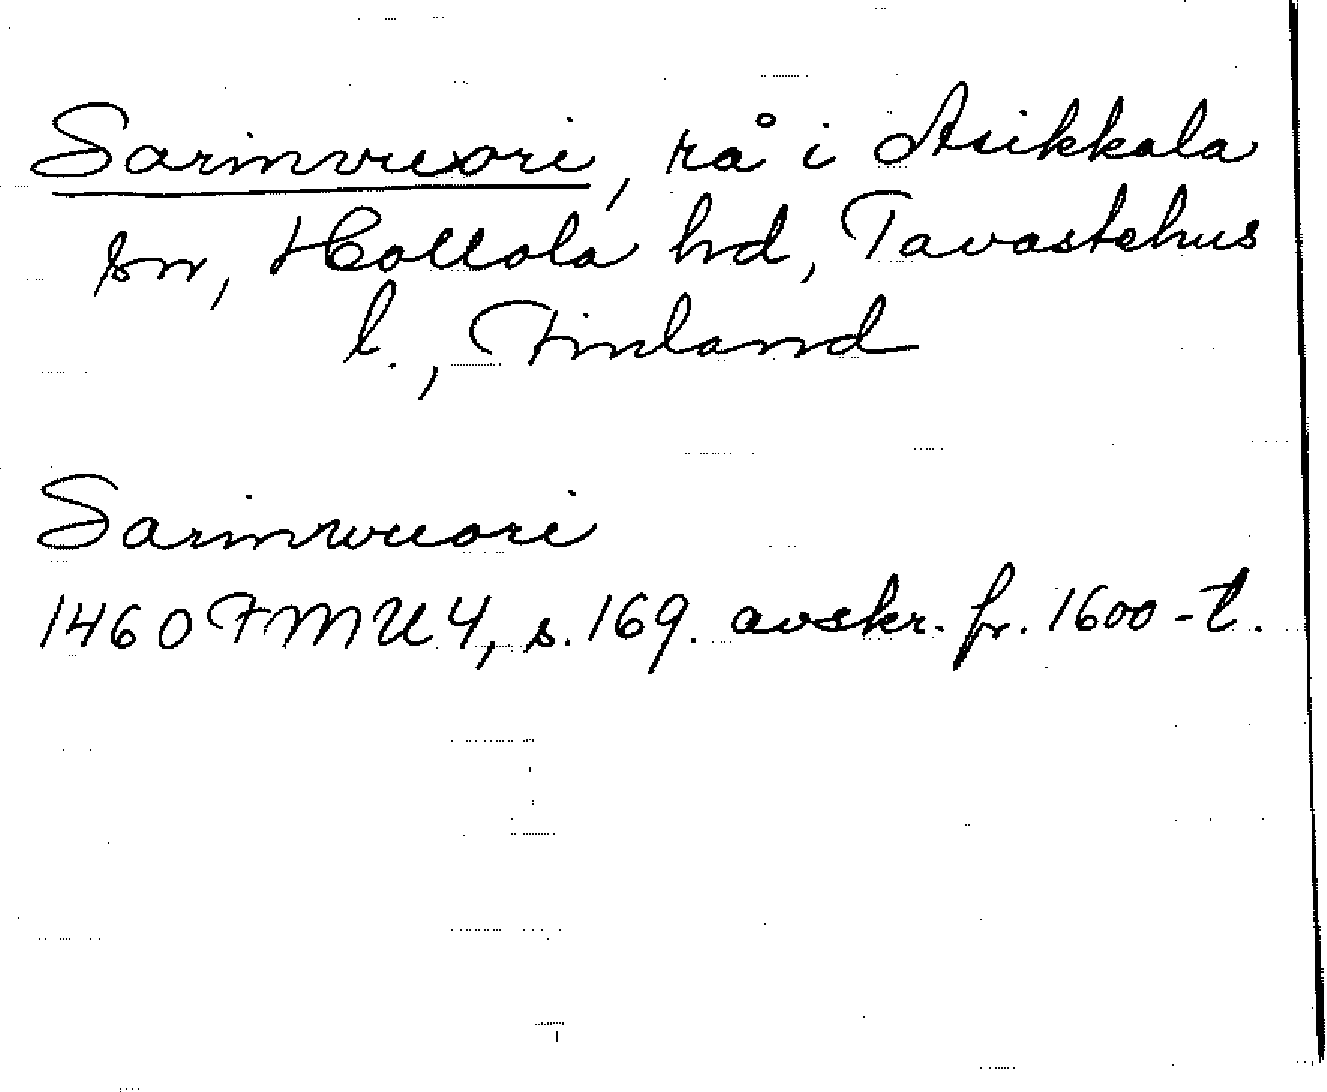 Sarinvuori, rå i Asikkala
sn, Hollola hd, Tavastehus
l., Finland
Sarinwuori
1460 FMU 4, s. 169. avskr. fr. 1600-t.